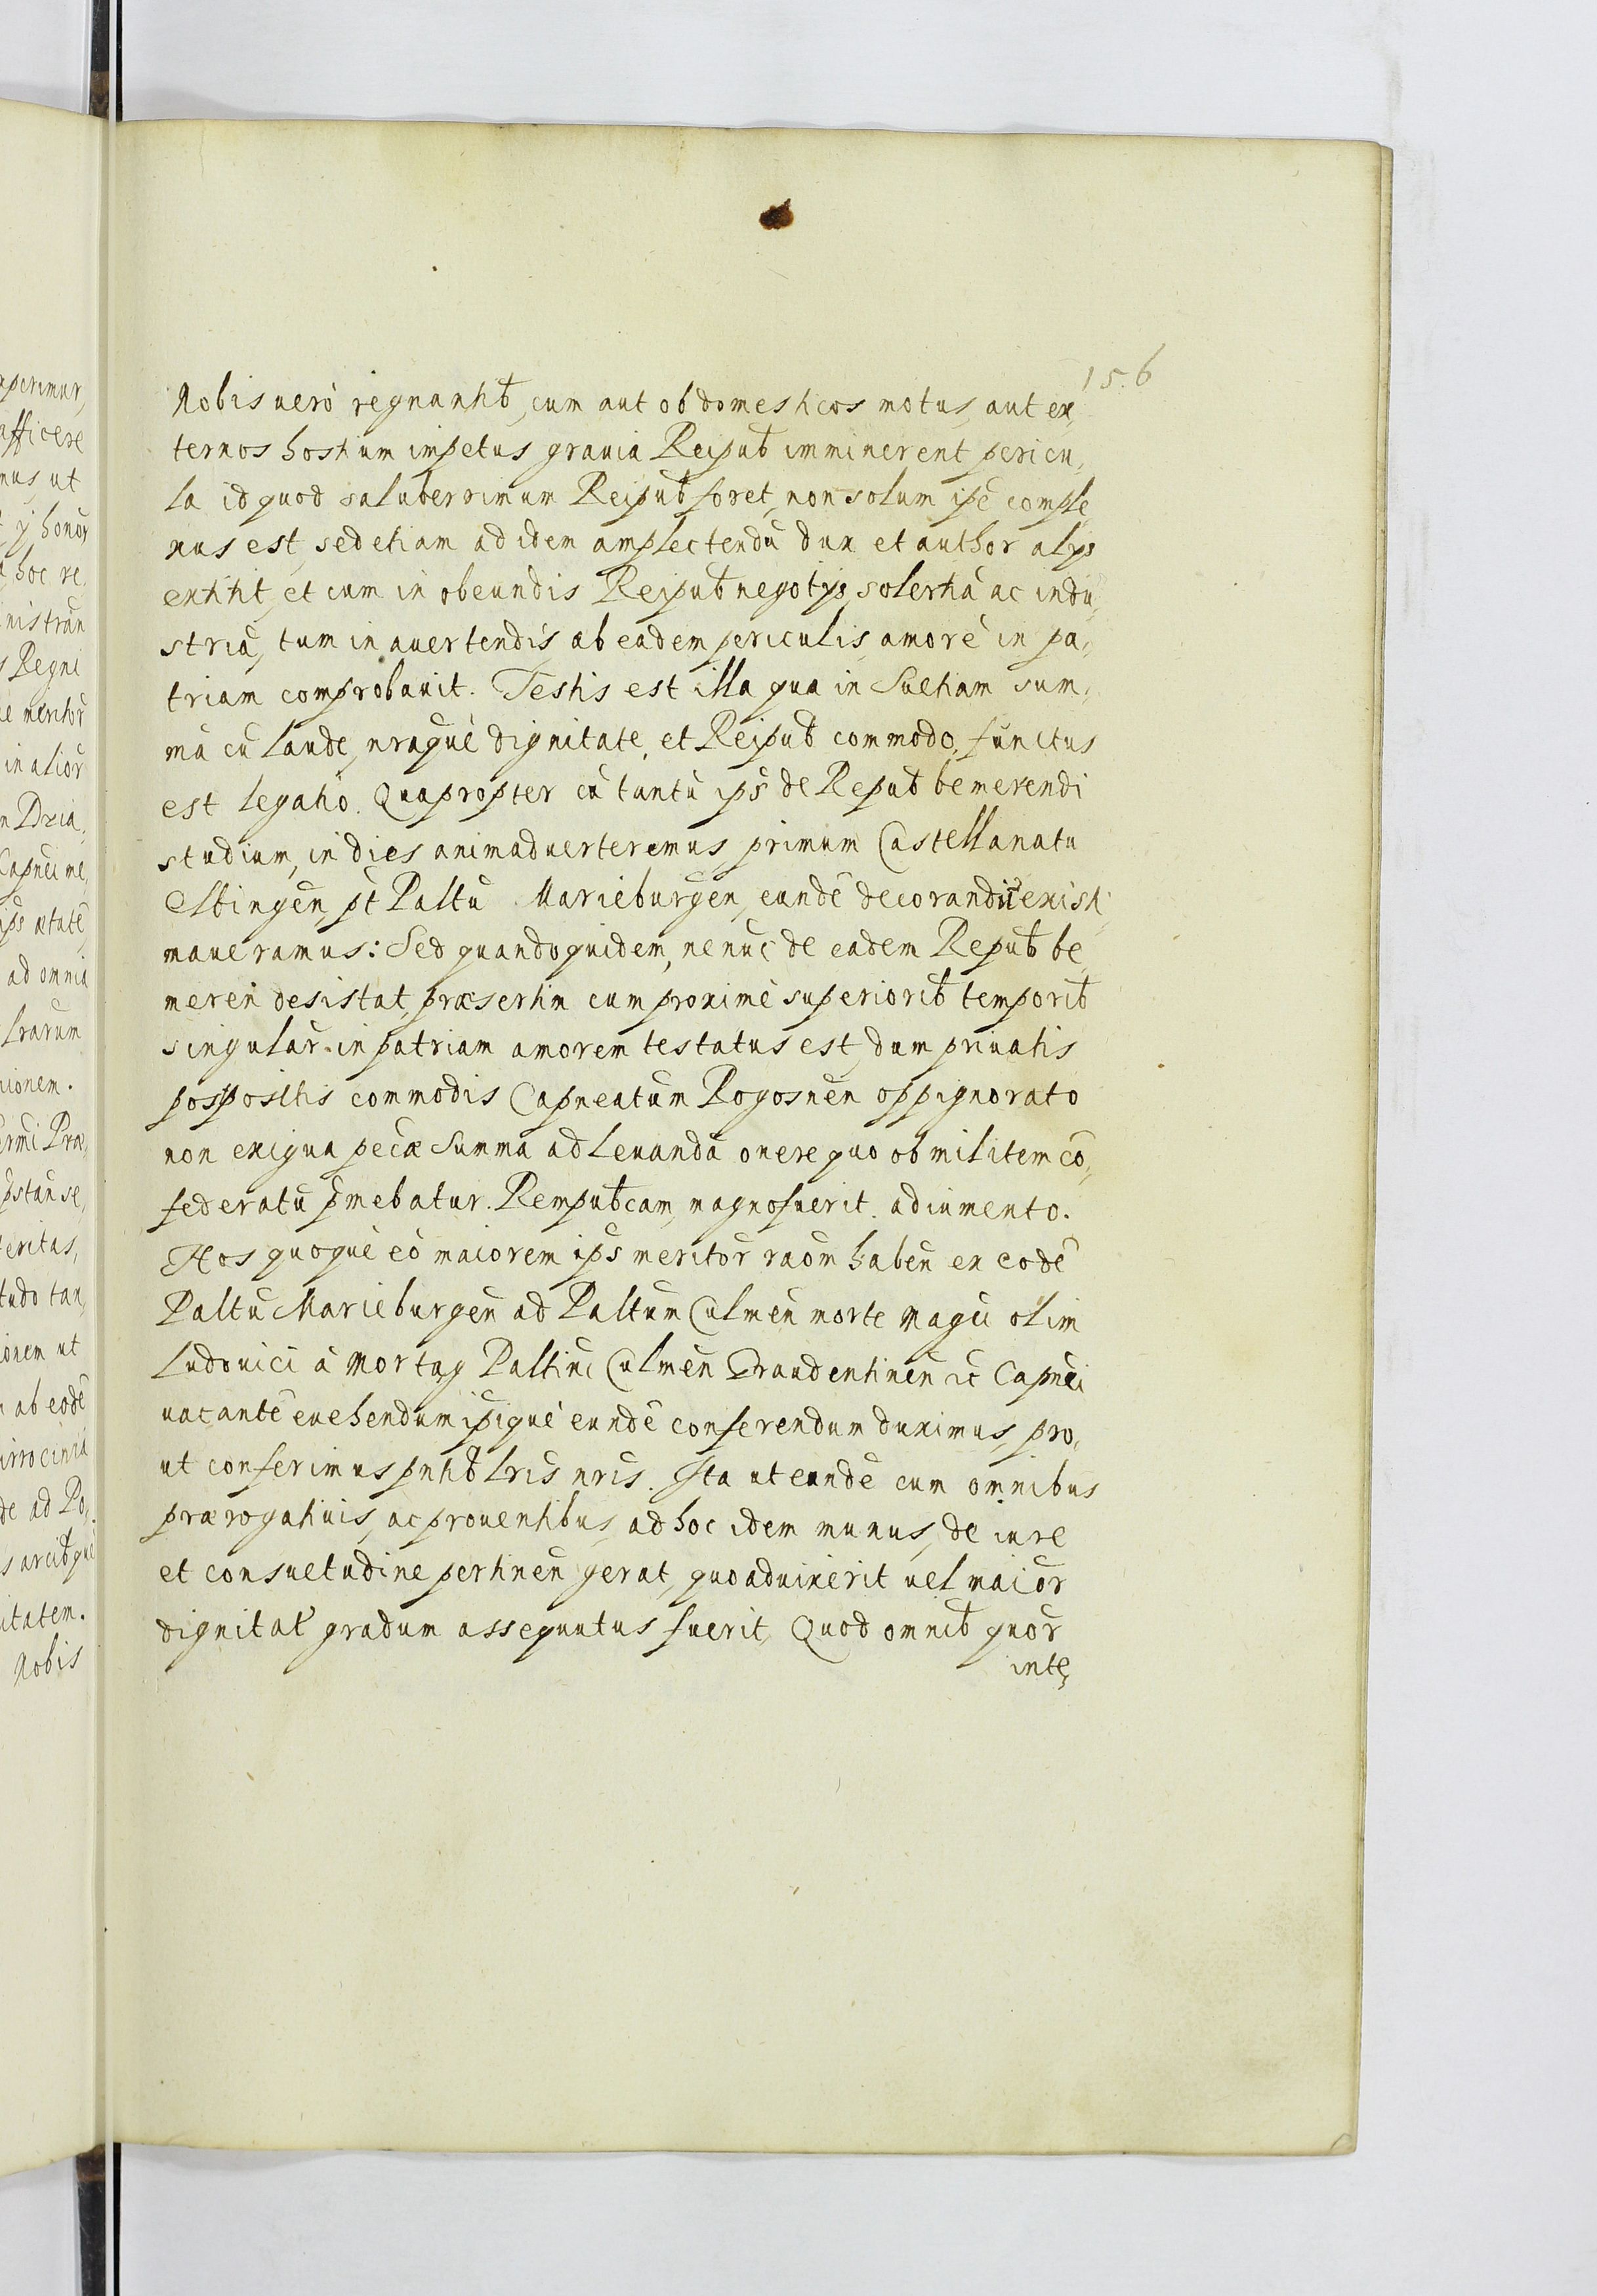 15.6
Nobis uerò regnantib, cum aut ob domesticos motus, aut ex,
ternos hostium impetus grauia Reipub imminerent pericu,
la id quod saluberrimum Reipub foret, non solum ipē comple,
xus est, sed etiam ad idem amplectendū dux et author alijs
extitit, et cum in obeundis Reipub negotijs, solertiā ac indu,
striā, tum in auertendis ab eadem periculis, amorē in pa,
triam comprobauit. Testis est illa qua in Suetiam sum,
mā cū laude, nraquè dignitate, et Reipub commodo, functus
est legatio. Quapropter cū tantū ips de Repub bemerendi
studium, in dies animaduerteremus, primum Castellanatu
Elbingeñ, pt Paltū Marieburgeñ, eundē decorandū existi,
maueramus: Sed quandoquidem, ne nūc de eadem Repub be,
mereri desistat, præsertim cum proximè superiorib temporib
singulār in patriam amorem testatus est, dum priuatis
pospositis commodis Capneatum Rogosneñ oppignorato
non exigua pecæ summa ad leuandā onere quo ob militem cō,
federatū pmebatur. Rempubcam, magno fuerit adiumento.
Nos quoquè eò maiorem ips meritor raōm habeñ ex eodē
Paltū Marieburgeñ ad Paltum Culmeñ morte Magci olim
Ludouici à Mortāg Paltini Culmeñ Graudentineñ ic Capnei
uacantē euehendum ipiquè eundē conferendum duximus, pro,
ut conferimus pntib lris nris. Ita ut eundē cum omnibus
prærogatiuis, ac prouentibus, ad hoc idem munus, de iure
et consuetudine pertineñ gerat, quoad uixerit uel maior
dignitat gradum assequutus fuerit, Quod omnib quor
inte,